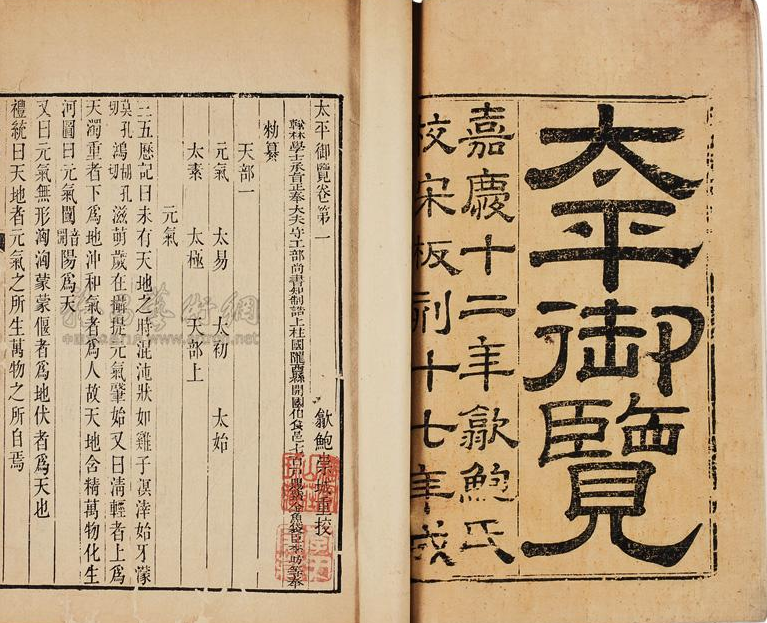 太平御覽
嘉慶十二年歙鮑氏
校宋板刻十七年成
太平御覽卷第一
歙鮑崇城重挍
翰林學士承旨正奉大夫守工部尚書知制誥上柱國隴西縣開國伯食邑七百戶賜紫金魚袋臣李昉等奉
勑纂
天部一
元氣 太易 太初 太始
太素 太極 天部上
元氣
三五歷記曰未有天地之時混沌狀如雞子溟涬始牙濛
莫孔切鴻胡孔切滋萌歲在攝提元氣肇始又曰清輕者上爲
天濁重者下爲地沖和氣者爲人故天地含精萬物化生
河圖曰元氣闓音開陽爲天
又曰元氣無形洶洶蒙蒙偃者爲地伏者爲天也
禮統曰天地者元氣之所生萬物之所自焉